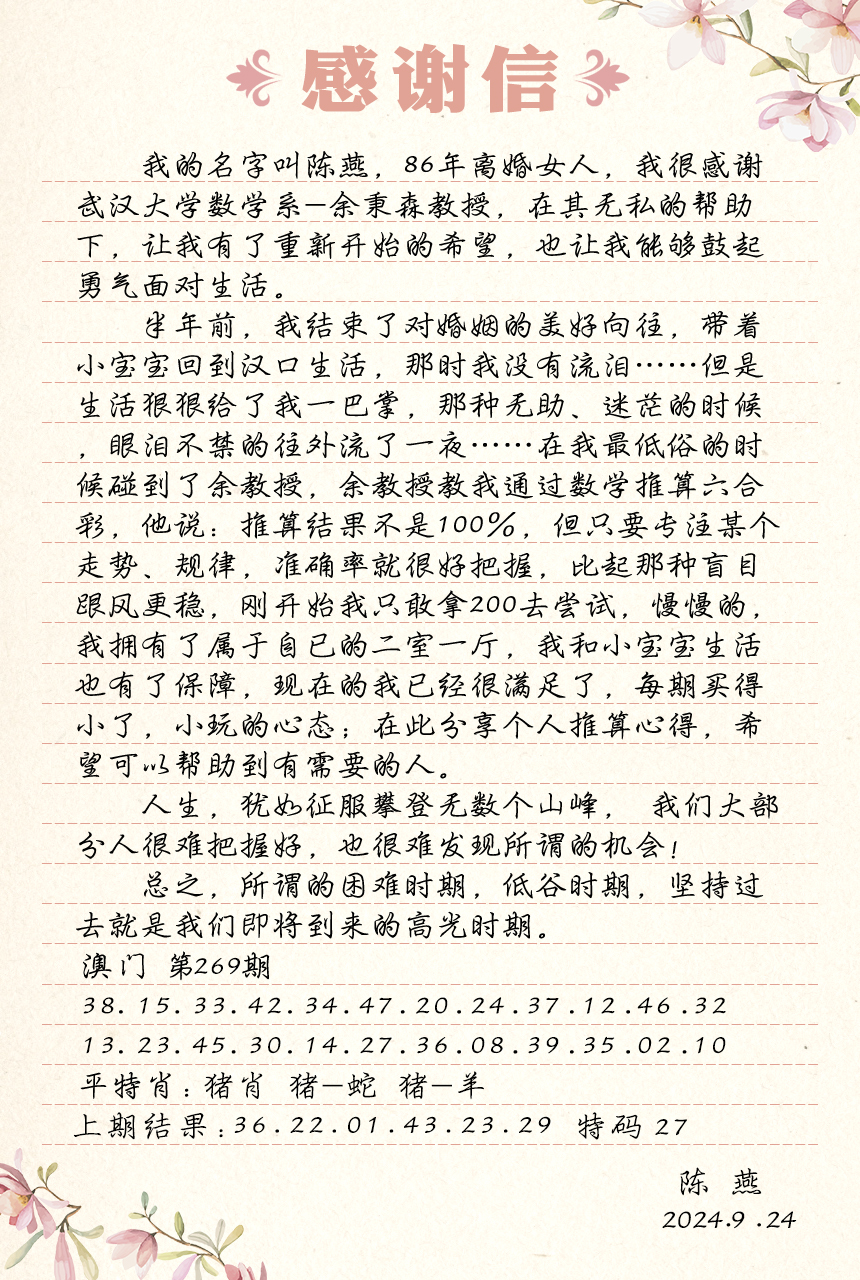 感谢信
我的名字叫陈燕，86年离婚女人，我很感谢
武汉大学数学系—余秉森教授，在其无私的帮助
下，让我有了重新开始的希望，也让我能够鼓起
勇气面对生活。
半年前，我结束了对婚姻的美好向往，带着
小宝宝回到汉口生活，那时我没有流泪……但是
生活狠狠给了我一巴掌，那种无助、迷茫的时候
，眼泪不禁的往外流了一夜……在我最低俗的时
候碰到了余教授，余教授教我通过数学推算六合
彩，他说：推算结果不是100%，但只要专注某个
走势、规律，准确率就很好把握，比起那种盲目
跟风更稳，刚开始我只敢拿200去尝试，慢慢的，
我拥有了属于自已的二室一厅，我和小宝宝生活
也有了保障，现在的我已经很满足了，每期买得
小了，小玩的心态；在此分享个人推算心得，希
望可以帮助到有需要的人。
人生，犹如征服攀登无数个山峰， 我们大部
分人很难把握好，也很难发现所谓的机会！
总之，所谓的困难时期，低谷时期，坚持过
去就是我们即将到来的高光时期。
澳门 第269期
38.15.33.42.34.47.20.24.37.12.46.32
13.23.45.30.14.27.36.08.39.35.02.10
平特肖：猪肖 猪—蛇 猪—羊
上期结果：36.22.01.43.23.29 特码 27
陈 燕
2024.9.24